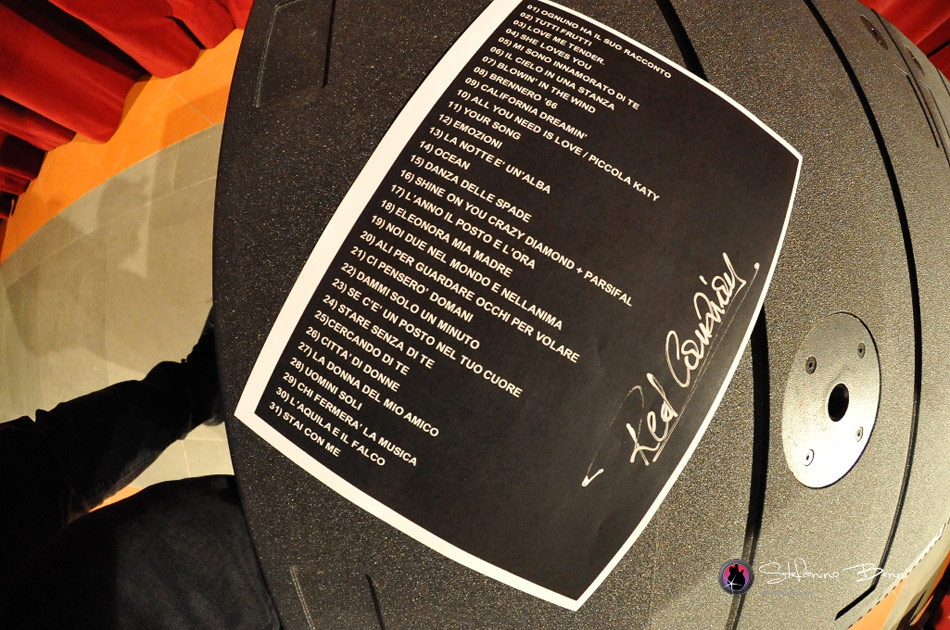 01) OGNUNO HA IL SUO RACCONTO
02) TUTTI FRUTTI
03) LOVE ME TENDER.
04) SHE LOVES YOU
05) MI SONO INNAMORATO DI TE
06) IL CIELO IN UNA STANZA
07) BLOWIN' IN THE WIND
08) BRENNERO '66
09) CALIFORNIA DREAMIN'
10) ALL YOU NEED IS LOVE / PICCOLA KATY
11) YOUR SONG
12) EMOZIONI
13) LA NOTTE E' UN'ALBA
14) OCEAN
15) DANZA DELLE SPADE
16) SHINE ON YOU CRAZY DIAMOND + PARSIFAL
17) L'ANNO IL POSTO E L'ORA
18) ELEONORA MIA MADRE
19) NOI DUE NEL MONDO E NELLANIMA
20) ALI PER GUARDARE OCCHI PER VOLARE
21) CI PENSERO' DOMANI
22) DAMMI SOLO UN MINUTO
23) SE C'E' UN POSTO NEL TUO CUORE
24) STARE SENZA DI TE
25)CERCANDO DI TE
26) CITTA' DI DONNE
27) LA DONNA DEL MIO AMICO
28) UOMINI SOLI
29) CHI FERMERA' LA MUSICA
30) L'AQUILA E IL FALCO
31) STAI CON ME
Red Canzian
Stefanino